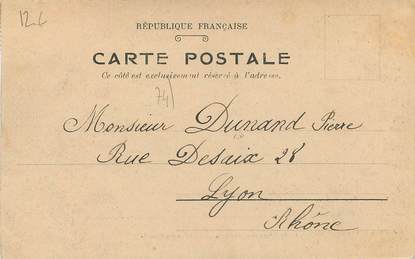 12-6
RÉPUBLIQUE FRANÇAISE
CARTE POSTALE
Ce côté est exclusivement réservé à l'adresse.
74
Monsieur Dunand Pierre
Rue Desaix 28
Lyon
Rhône